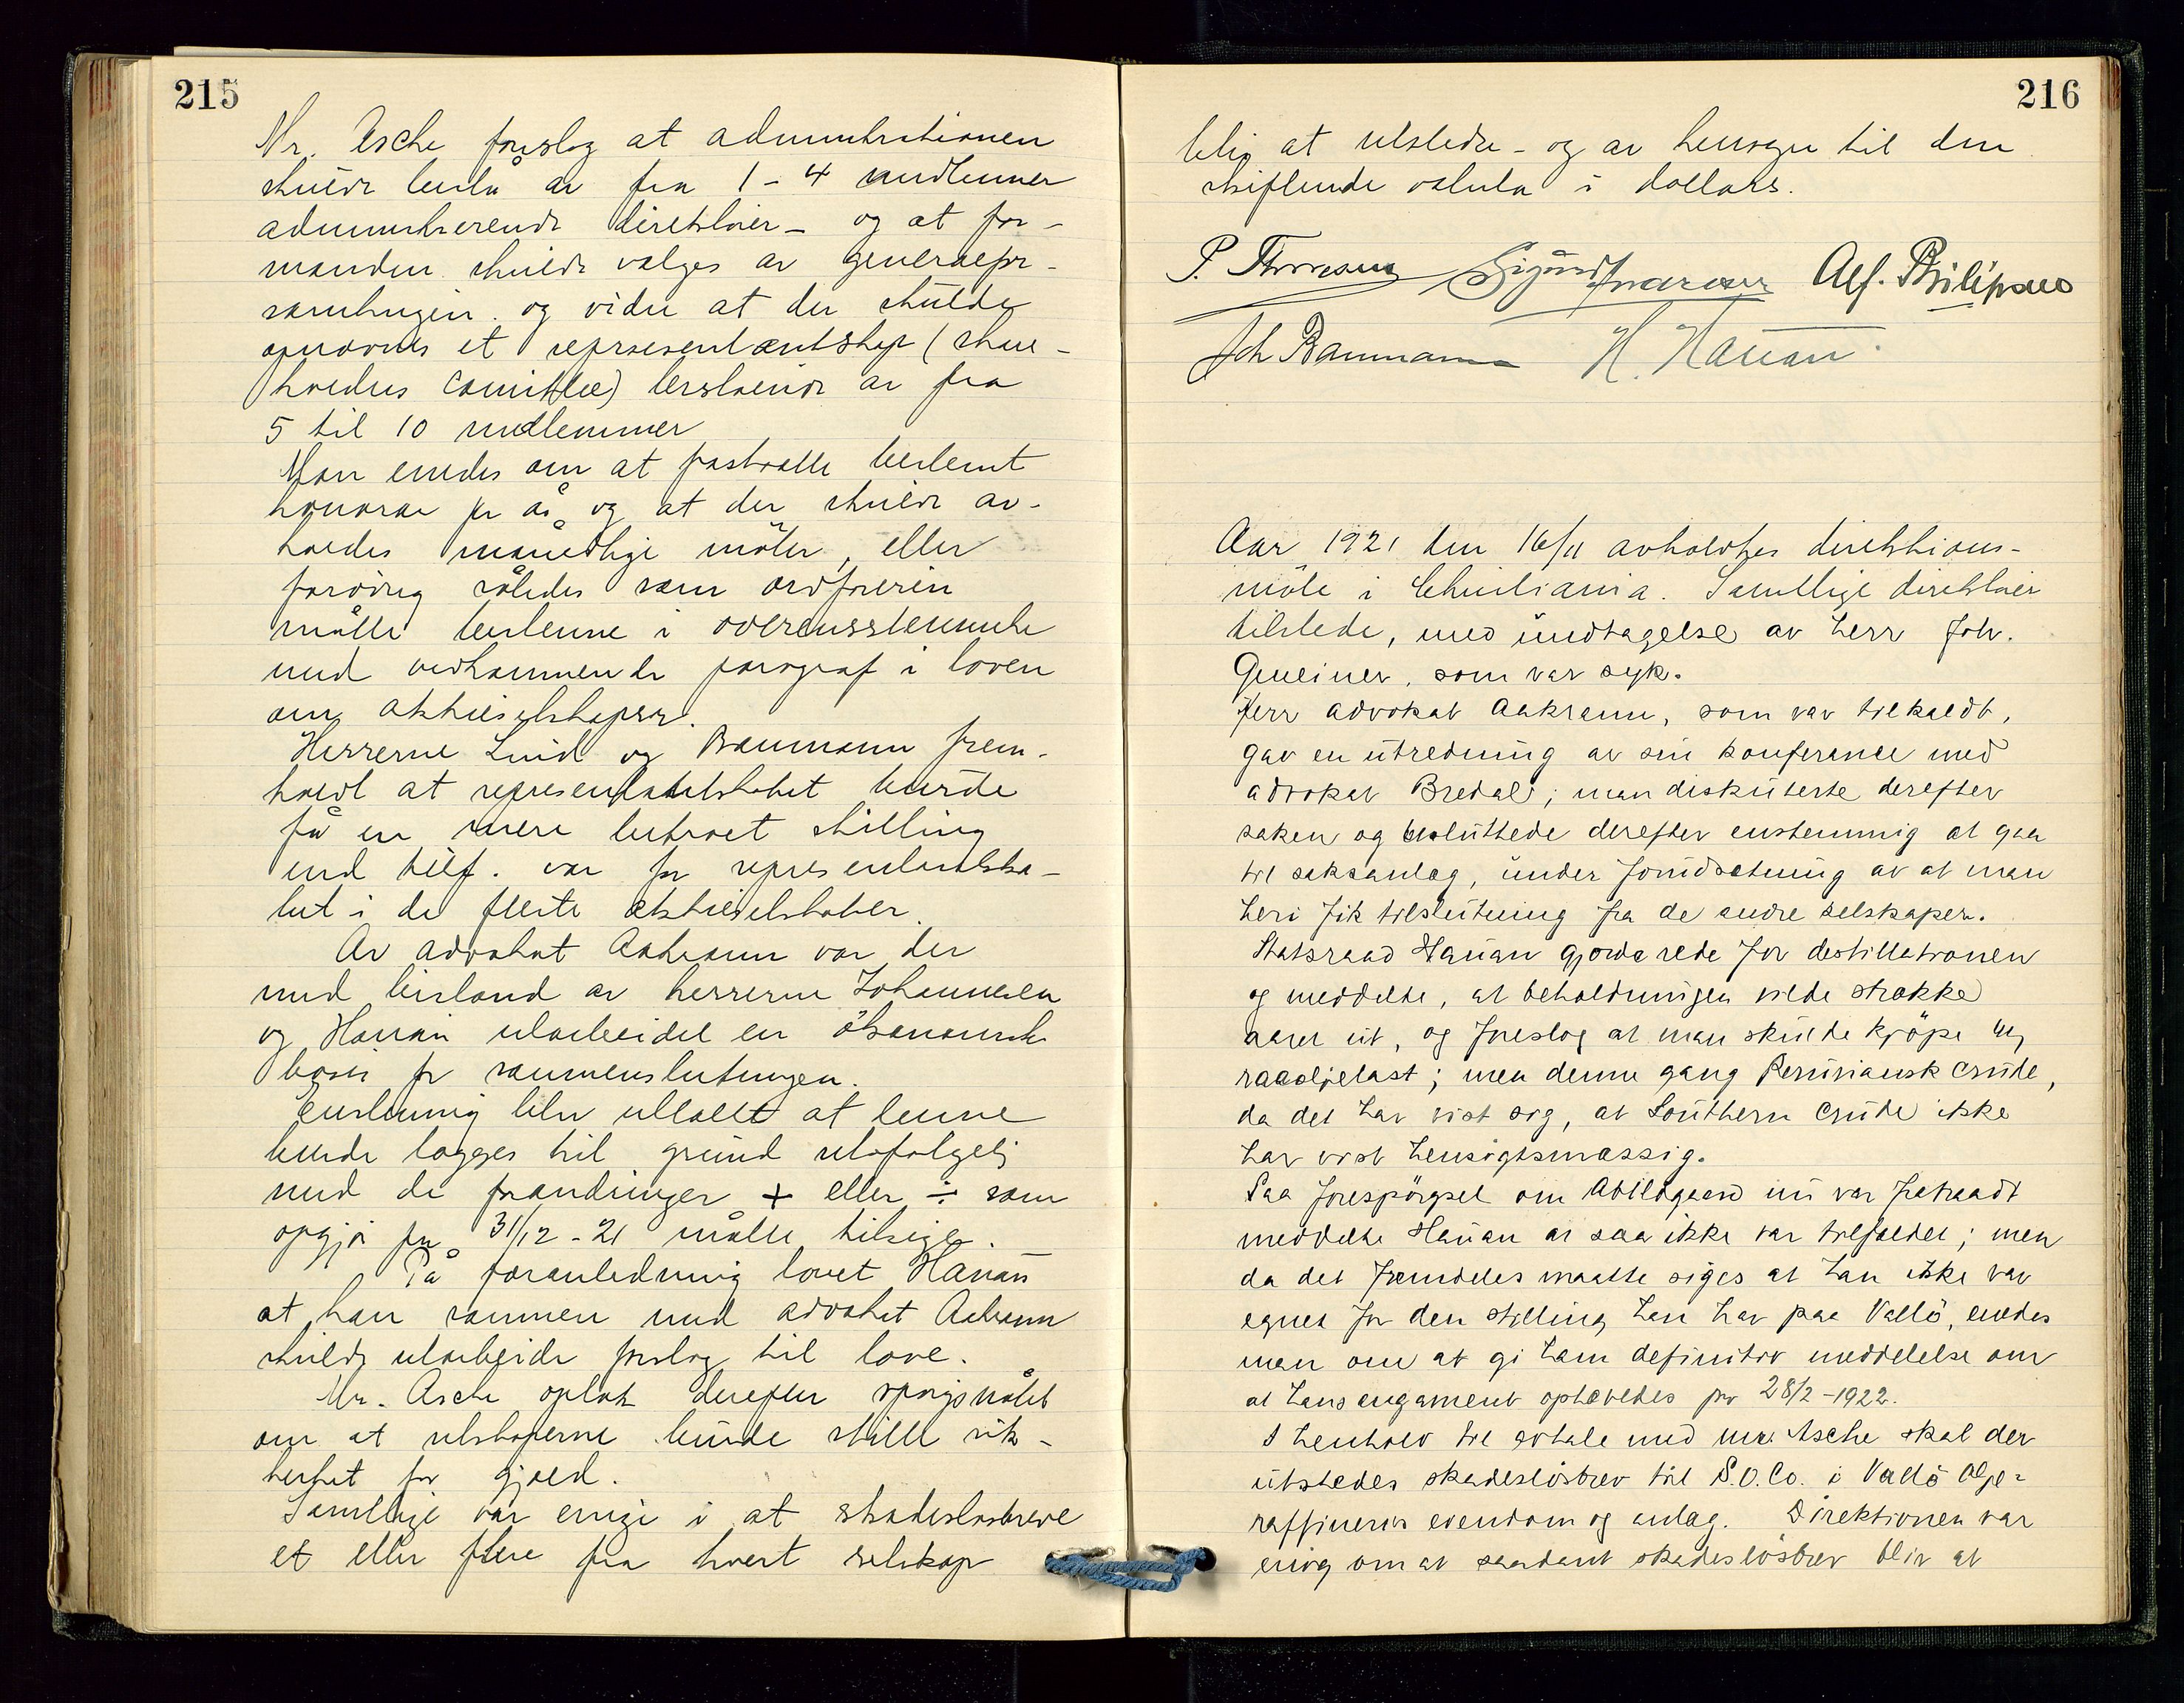 215
Mr. Asche foreslog at administrationen
skulde bestå av fra 1-4 medlemmer
administrerende direktører - og at for-
manden skulde vælges av generalfor-
samlingen. og videre at der skulde
opnævnes et repræsentantskap (share-
holders comittee) bestående av fra
5 til 10 medlemmer
Man enedes om at fastsætte bestemt
honorar pr år og at der skulde av-
holdes månedlige möter, eller
forövrig således som ordföreren
måtte bestemme i overensstemmelse
med vedkommende paragraf i loven
om aktieselskaper.
Herrerne Lind og Baumann frem-
holdt at representantskabet burde
få en mere betroet stilling
end tilf. var for representantska-
bet i de fleste aktieselskaber.
Av advokat Aakrann var der
med bistand av herrerne Johannesen
og Hauan utarbeidet en ökonomisk
basis for sammenslutningen.
Enstemmig blev uttalt at denne
burde lægges til grund selvfølgelig
med de forandringer + eller ÷ som
opgjör pr 31/12-21 måtte tilsige.
På foranledning lovet Hauan
at han sammen med advokat Aakrann
skulde utarbeide forslag til love.
Mr. Asche optok derefter spörgsmålet
om at selskaperne burde stille sik-
kerhet for gjæld.
Samtlige var enige i at skadeslösbreve
et eller flere fra hvert selskap
216
blir at utstede - og av hensyn til den
skiftende valuta i dollars.
P. Thoresen Sigurd Ivarson Alf. Philipsen
Joh Baumann H. Hauan.
Aar 1921 den 16/11 avholdtes direktions-
möte i Christiania. Samtlige direktører
tilstede, med undtagelse av herr Joh.
Gmeiner, som var syk.
Herr advokat Aakrann, som var tilkaldt,
gav en utredning av sin konferance med
advokat Bredal; man diskuterte derefter
saken og besluttede derefter enstemmig at gaa
til saksanlæg, under forudsetning av at man
heri fik tilslutning fra de andre selskaper.
Statsraad Hauan gjorde rede for destillationen
og meddelte, at beholdningen vilde strække
aaret ut, og foreslog at man skulde kjöpe ny
raaoljelast; men denne gang Peruviansk crude,
da det har vist sig, at Southern crude ikke
har vist hensigtsmæssig.
Paa forespörgsel om Abildgaard nu var fratraadt
meddelte Hauan at saa ikke var tilfældet; men
da det fremdeles maatte siges at han ikke var
egnet for den stilling han har paa Vallö, enedes
man om at gi ham definitiv meddelelse om
at hans engagement ophævedes pr 28/2-1922.
I henhold til avtale med mr. Asche skal der
utstedes skadeslösbrev til S.O.Co. i Vallö Olje-
raffineris eiendom og anlæg. Direktionen var
enig om at saadant skadeslösbrev blir at